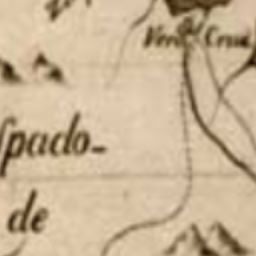 Vera Cruz
ſpado-
de